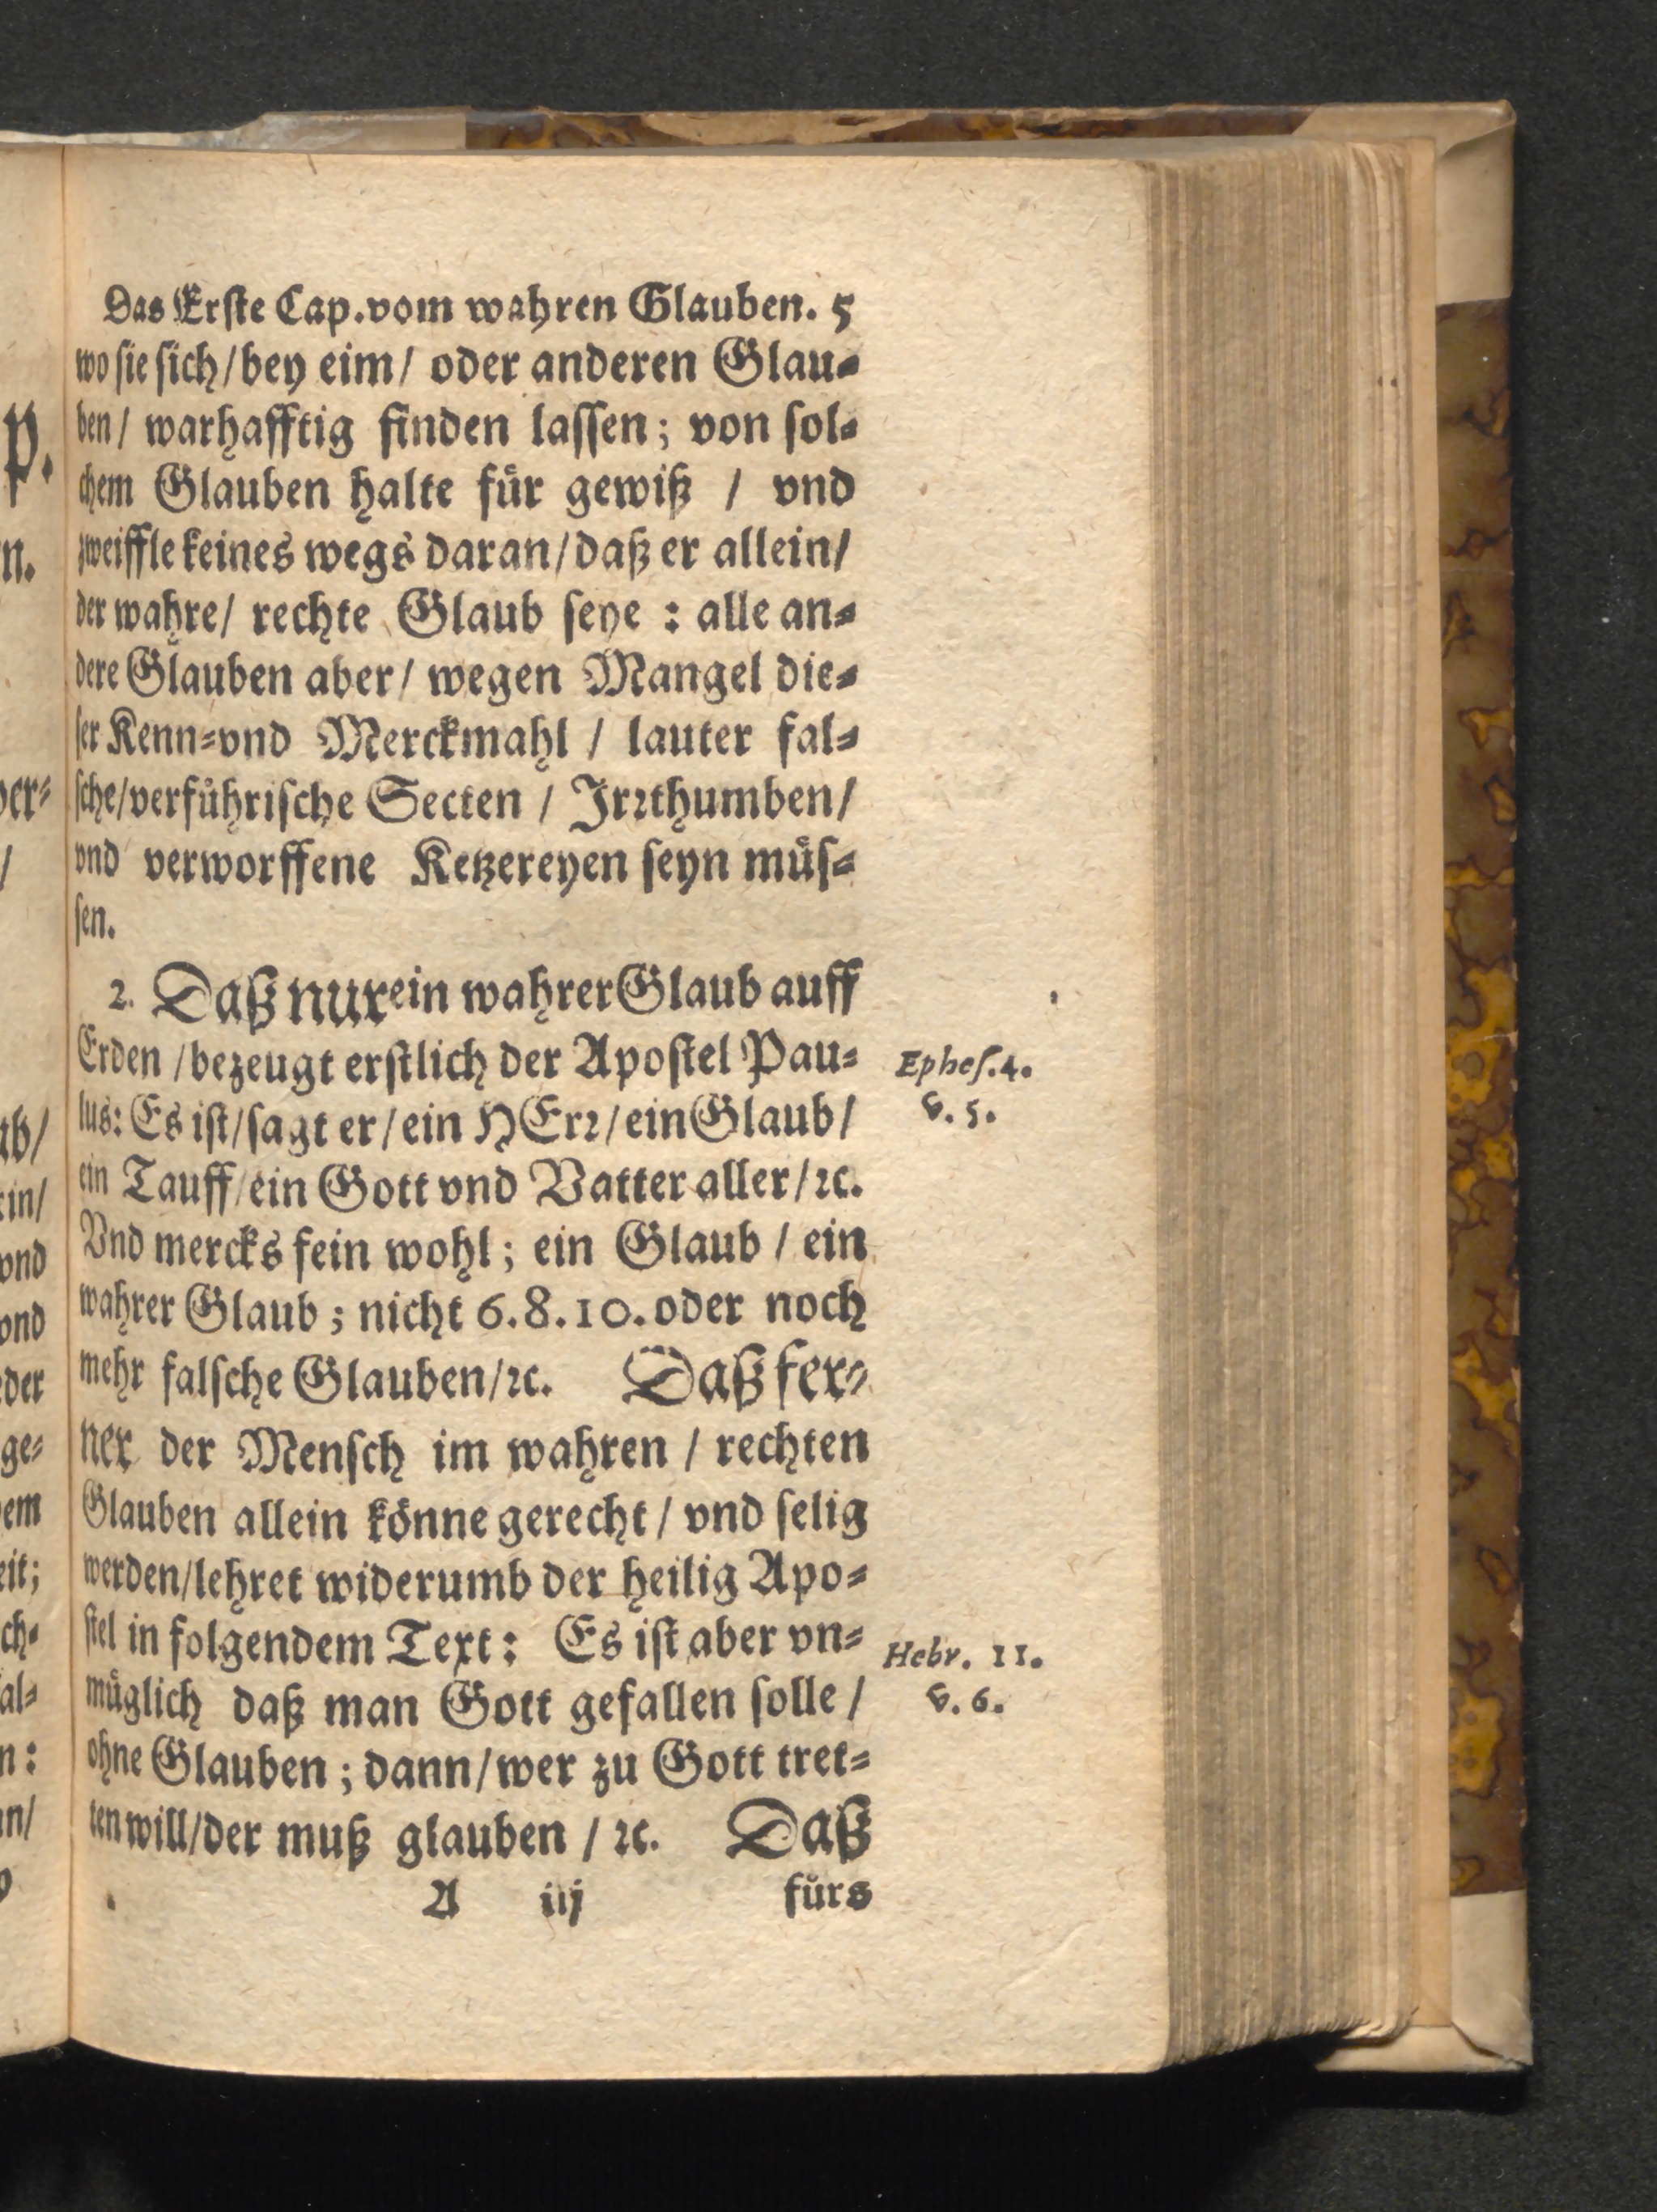 Das Erſte Cap. vom wahren Glauben. 5
wo ſie ſich/ bey eim/ oder anderen Glau⸗
ben/ warhafftig finden laſſen; von ſol⸗
chem Glauben halte fuͤr gewiß / vnd
zweiffle keines wegs daran/ daß er allein/
der wahre/ rechte Glaub ſeye : alle an⸗
dere Glauben aber/ wegen Mangel die⸗
ſer Kenn⸗vnd Merckmahl / lauter fal⸗
ſche/ verfuͤhriſche Secten / Jrꝛthumben/
vnd verworffene Ketzereyen ſeyn muͤſ⸗
ſen.
2. Daß nur ein wahrer Glaub auff
Erden / bezeugt erſtlich der Apoſtel Pau⸗
Epheſ. 4.
lus: Es iſt/ ſagt er/ ein HErꝛ/ ein Glaub/
v. 5.
ein Tauff/ ein Gott vnd Vatter aller/ ꝛc.
Vnd mercks fein wohl; ein Glaub / ein
wahrer Glaub; nicht 6. 8. 10. oder noch
mehr falſche Glauben/ ꝛc. Daß fer⸗
ner der Menſch im wahren / rechten
Glauben allein koͤnne gerecht/ vnd ſelig
werden/ lehret widerumb der heilig Apo⸗
ſtel in folgendem Text: Es iſt aber vn⸗
Hebr. 11.
muͤglich daß man Gott gefallen ſolle /
v. 6.
ohne Glauben; dann/ wer zu Gott tret⸗
ten will/ der muß glauben / ꝛc. Daß
A iij fuͤrs